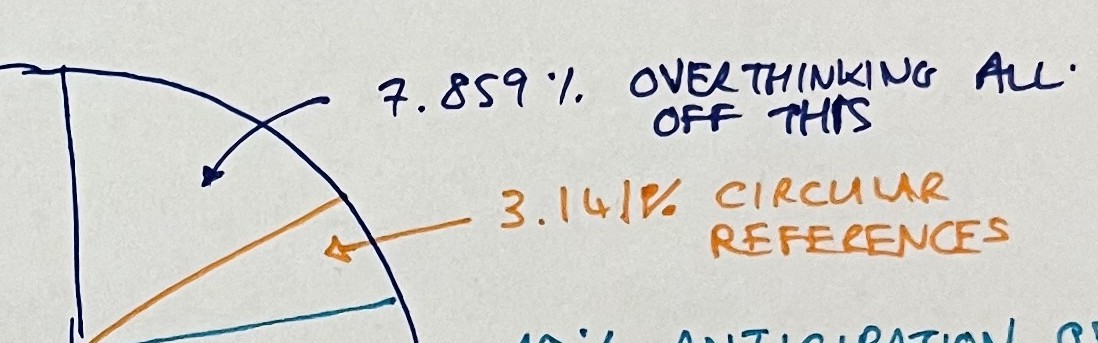 7.859% OVERTHINKING ALL.
OFF THIS
3.141% CIRCULAR
REFERENCES
ANTICIPATION